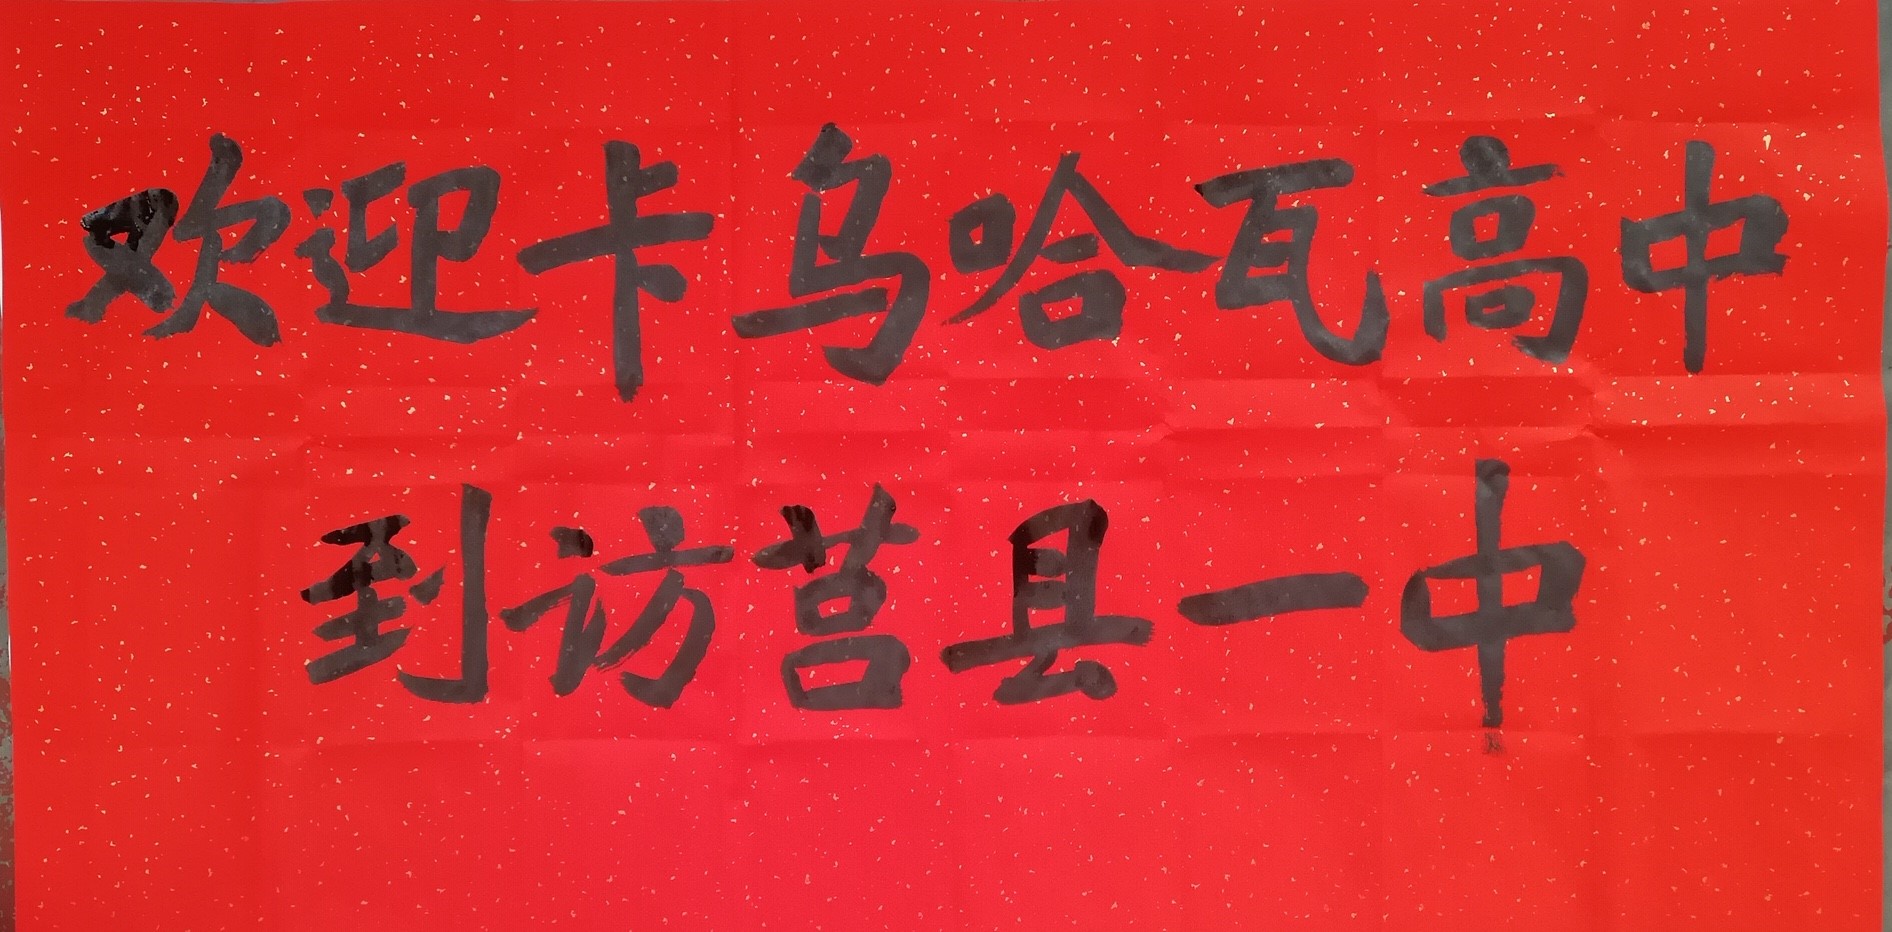 欢迎卡乌哈瓦高中
到访莒县一中